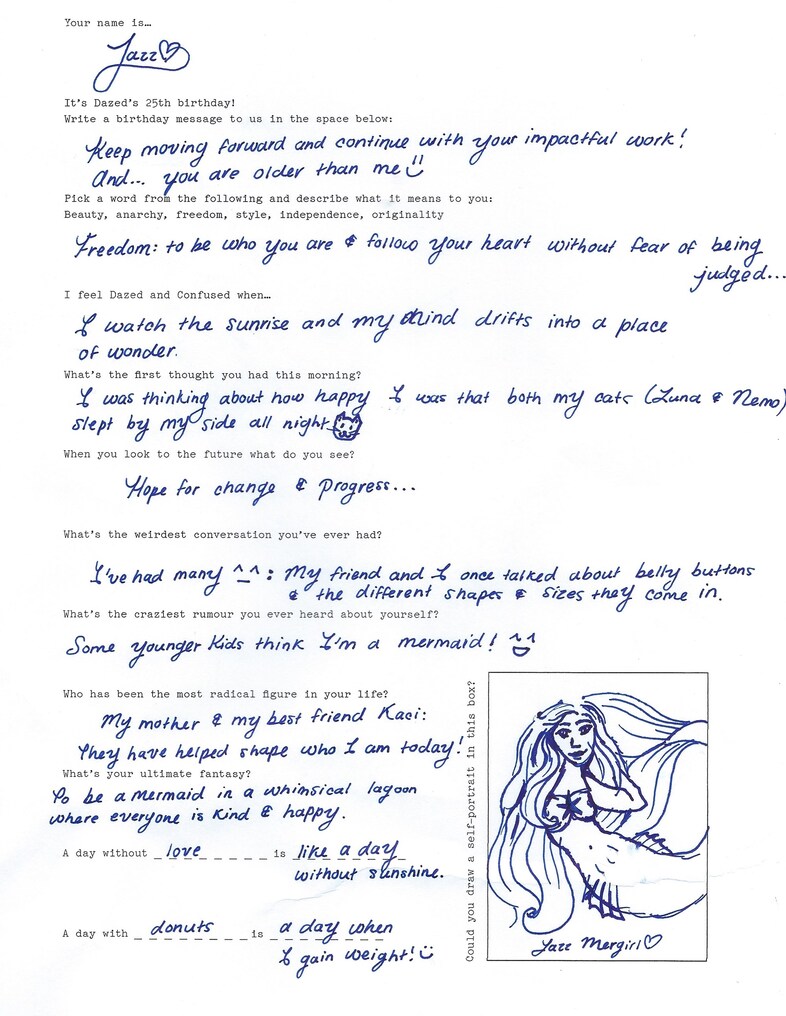 Your name is…
Jazz♡
It's Dazed's 25th birthday!
Write a birthday message to us in the space below:
Keep moving forward and continue with your impactful work!
And... you are older than me
Pick a word from the following and describe what it means to you:
Beauty, anarchy, freedom, style, independence, originality
Freedom: to be who you are & follow your heart without fear of being
judged...
I feel Dazed and Confused when…
I watch the sunrise and my mind drifts into a place
of wonder.
What's the first thought you had this morning?
I was thinking about how happy I was that both my cats (Luna & Nemo)
slept by my side all night
When you look to the future what do you see?
Hope for change & progress...
What's the weirdest conversation you've ever had?
I've had many ^_^: My friend and I once talked about belly buttons
& the different shapes & sizes they come in.
What's the craziest rumour you ever heard about yourself?
Some younger kids think I'm a mermaid!
Who has been the most radical figure in your life?
My mother & my best friend Kaci:
They have helped shape who I am today!
What's your ultimate fantasy?
To be a mermaid in a whimsical lagoon
where everyone is kind & happy.
A day without love is like a day
without sunshine.
A day with donuts is a day when
I gain weight!
Could you draw a self-portrait in this box?
Jazz Mergirl♡